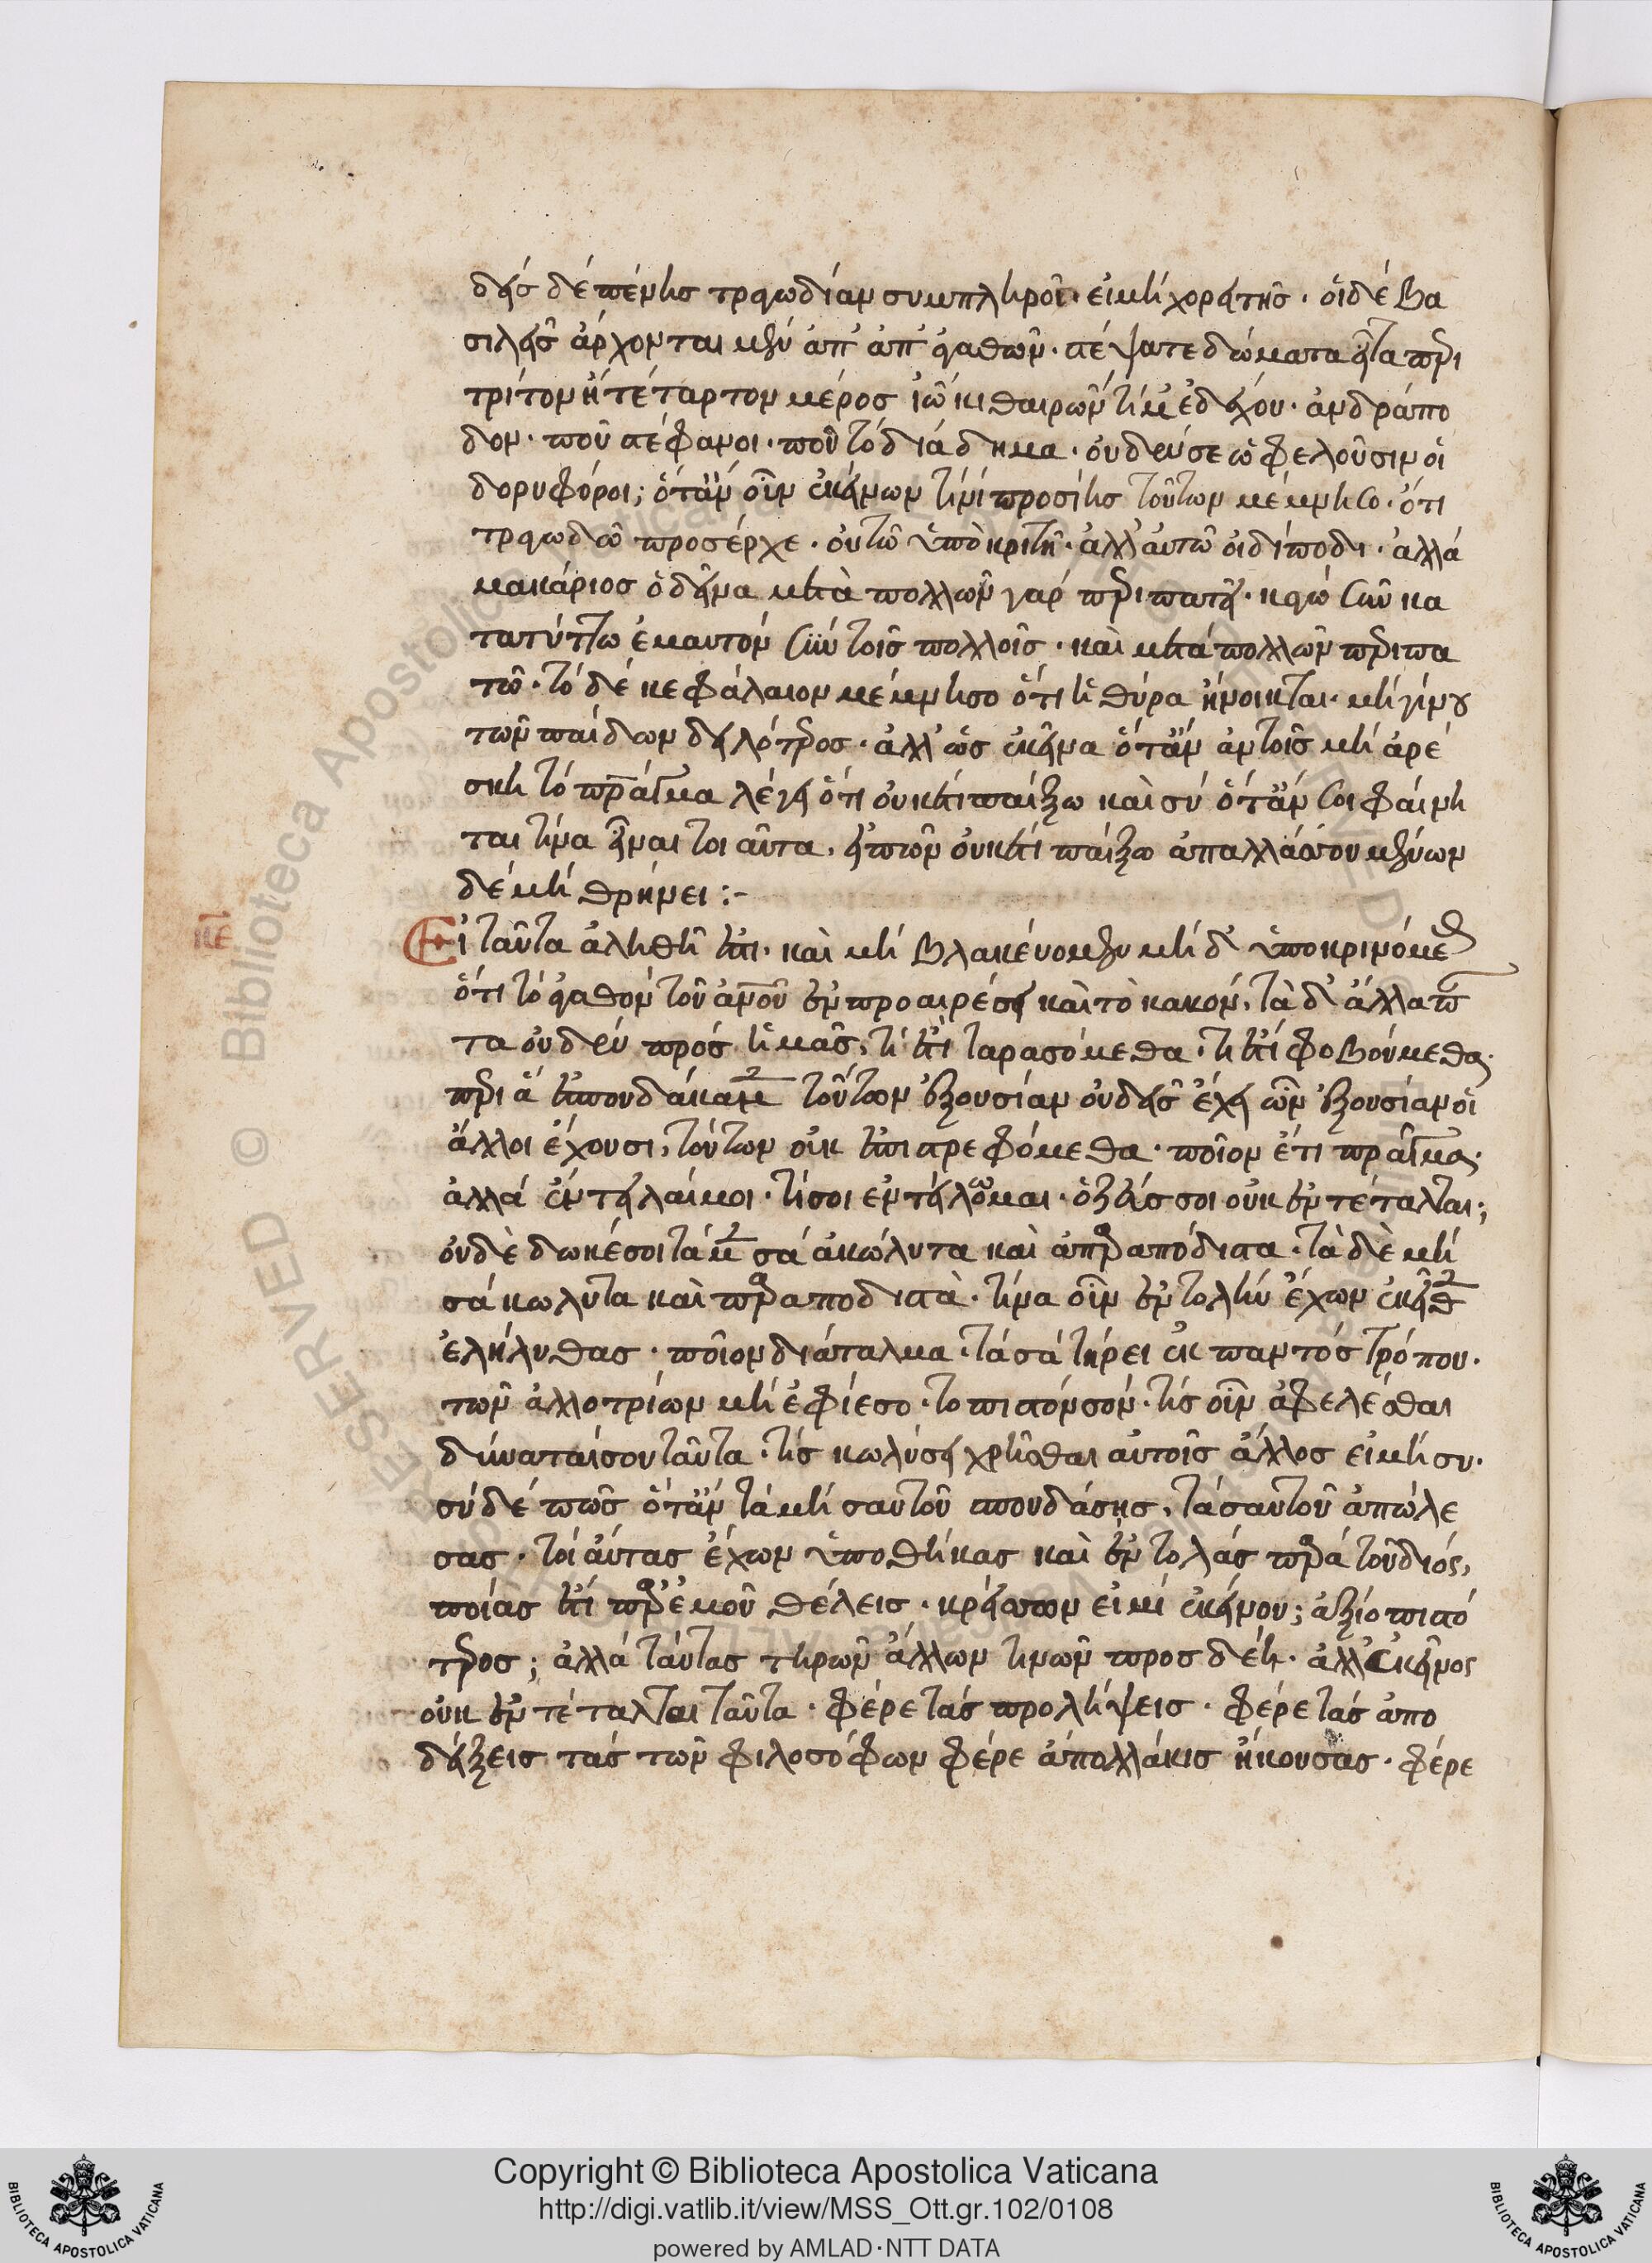 δεὶς δὲ πένης τραγωδίαν συμπληροῖ· εἰ μὴ χορευτὴς· οἱ δὲ βα
σιλεῖς ἄρχονται μὲν ἀπ' ἀπ' ἀγαθῶν· στέψατε δώματα εἶτα περὶ
τρίτον ἢ τέταρτον μέρος ἰὼ κιθαιρῶν τί μ' ἐδέχου· ἀνδράπο
δον· ποῦ στέφανοι· ποῦ τὸ διάδημα· οὐδέν σε ὠφελοῦσιν οἱ
δορυφόροι; ὅτἂν οὖν ἐκείνων τινὶ προσίης τούτων μέμνησο· ὅτι
τραγωδῶ προσέρχε· οὐ τῶ ὑποκριτῆ· ἀλλ' αὐτῶ οἰδίποδι· ἀλλὰ
μακάριος ὁ δεῖνα μετὰ πολλῶν γὰρ περιπατεῖ· κἀγὼ σὺν κα
τατάττω ἐμαυτὸν σὺν τοῖς πολλοῖς· καὶ μετὰ πολλῶν περιπα
τῶ· τὸ δὲ κεφάλαιον μέμνησο ὅτι ἡ θύρα ἤνοικται· μὴ γίνου
τῶν παίδων δειλότερος· ἀλλ' ὡς ἐκεῖνα ὅτἂν αὐτοῖς μὴ ἀρέ
σκη τὸ πρᾶγμα λέγει ὅτι οὐκέτι παίξω καὶ σὺ ὅτἂν σοι φαίνη
ται τινὰ εἶναι τοιαῦτα. εἰπὼν οὐκέτι παίξω ἀπαλλάσσου μένων
δὲ μὴ θρήνει :-
κε Εἰ ταῦτα ἀληθῆ ἐστι· καὶ μὴ βλακεύομεν μὴ δ' ὑποκρινόμεθ
ὅτι τὸ ἀγαθὸν τοῦ ἀνοῦ ἐν προαιρέσει καὶ τὸ κακόν, τὰ δ' ἄλλα π
τα οὐδὲν πρὸς ἡμᾶς, τί ἔτι ταρασόμεθα· τί ἔτι φοβούμεθα·
περὶ ἃ ἐσπουδάκαμ τούτων ἐξουσίαν οὐδεὶς ἔχει ὧν ἐξουσίαν οἱ
ἄλλοι ἔχουσι, τούτων οὐκ ἐπιστρεφόμεθα· ποῖον ἔτι πρᾶγμα·
ἀλλὰ ἔντειλαί μοι· τί σοι ἐντείλωμαι· ὁ ζεύς σοι οὐκ ἐντέταλται;
οὐδὲ δωκέ σοι τὰ μ σὰ ἀκώλυτα καὶ ἀπαραπόδιστα· τὰ δὲ μὴ
σὰ κωλυτὰ καὶ παραποδιστὰ· τίνα οὖν ἐντολὴν ἔχων ἐκεῖθ
ἐλήλυθας· ποῖον διάταλμα· τὰ σὰ τήρει ἐκ παντὸς τρόπου·
τῶν ἀλλοτρίων μὴ ἐφίεσο· το πιστὸν σόν· τίς οὖν ἀφελέσθαι
δύναταί σου ταῦτα· τίς κωλύσει χρῆσθαι αὐτοῖς ἄλλος εἰ μὴ συ·
σὺ δὲ πῶς ὅτἂν τὰ μὴ σαυτοῦ σπουδάσης, τὰ σαυτοῦ ἀπώλε
σας· τοιαύτας ἔχων ὑποθήκας καὶ ἐντολὰς παρὰ τοῦ διός,
ποίας ἔτι παρ' ἐμοῦ θέλεις· κρείσσων εἰμὶ ἐκείνου; ἀξιοπιστό
τερος; ἀλλὰ ταύτας τηρῶν ἄλλων τινῶν προσδέη· ἀλλ' ἐκεῖνος
οὐκ ἐντέταλται ταῦτα· φέρε τὰς προλήψεις· φέρε τὰς ἀπο
δείξεις τὰς τῶν φιλοσόφων φέρε ἃ πολλάκις ἤκουσας· φέρε
Copyright © Biblioteca Apostolica Vaticana
http://digi.vatlib.it/view/MSS_Ott.gr.102/0108
powered by AMLAD·NTT DATA